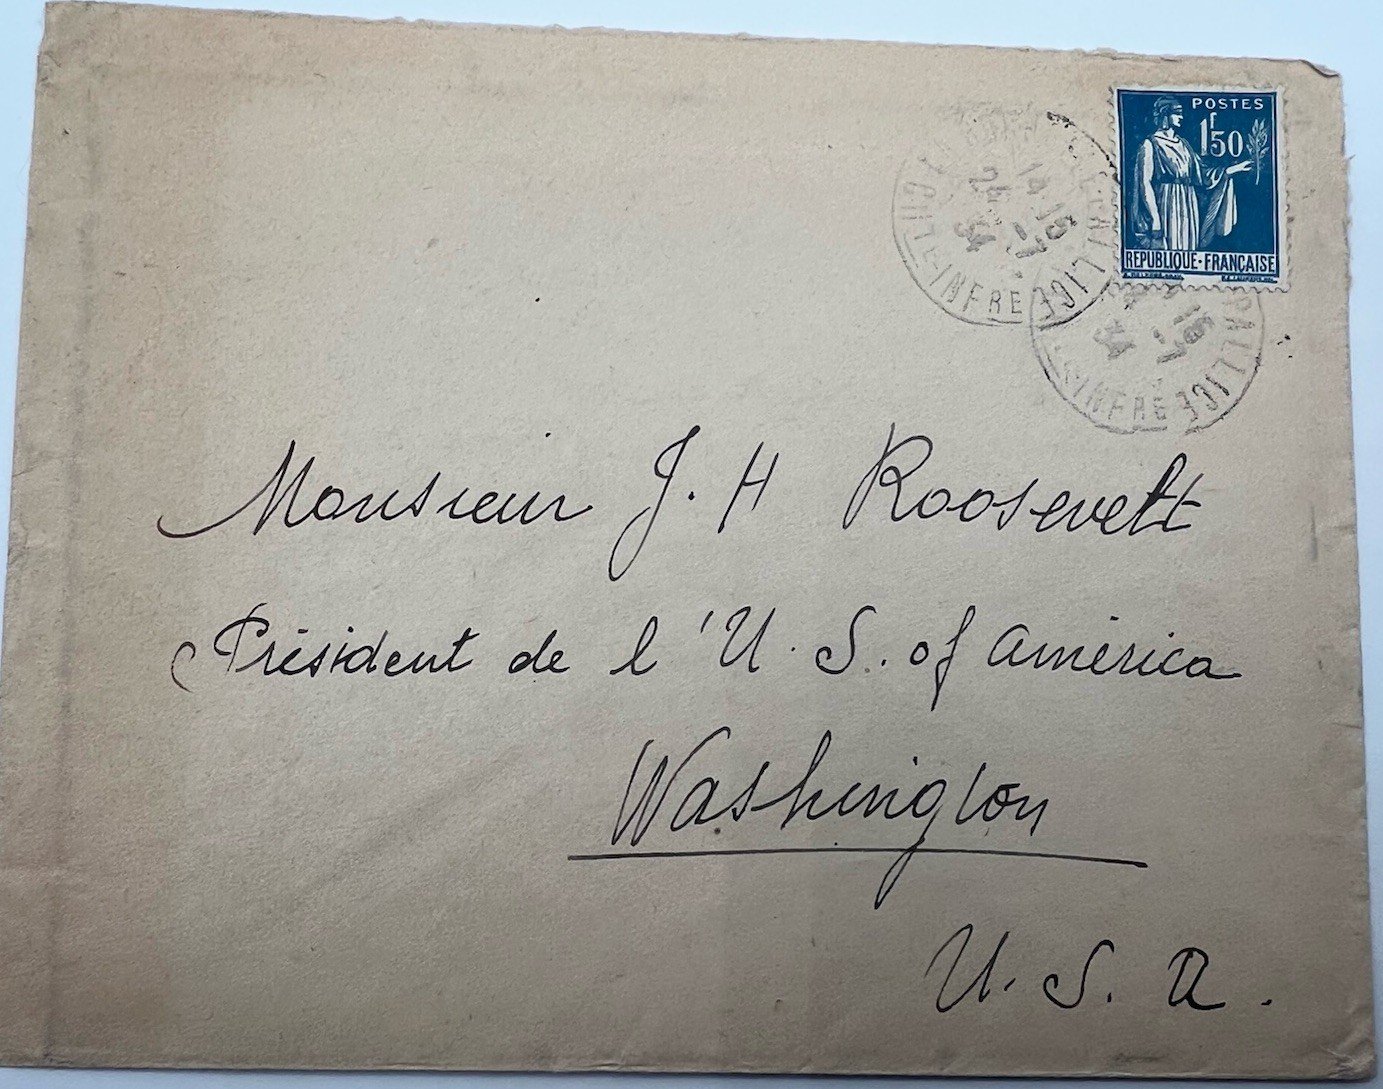 POSTES
1f50
RÉPUBLIQUE·FRANÇAISE
14 15
34
INFRE
PALLICE
INFRE
Monsieur J. H Roosevelt
Président de l'U.S. of América
Washington
U.S.A.